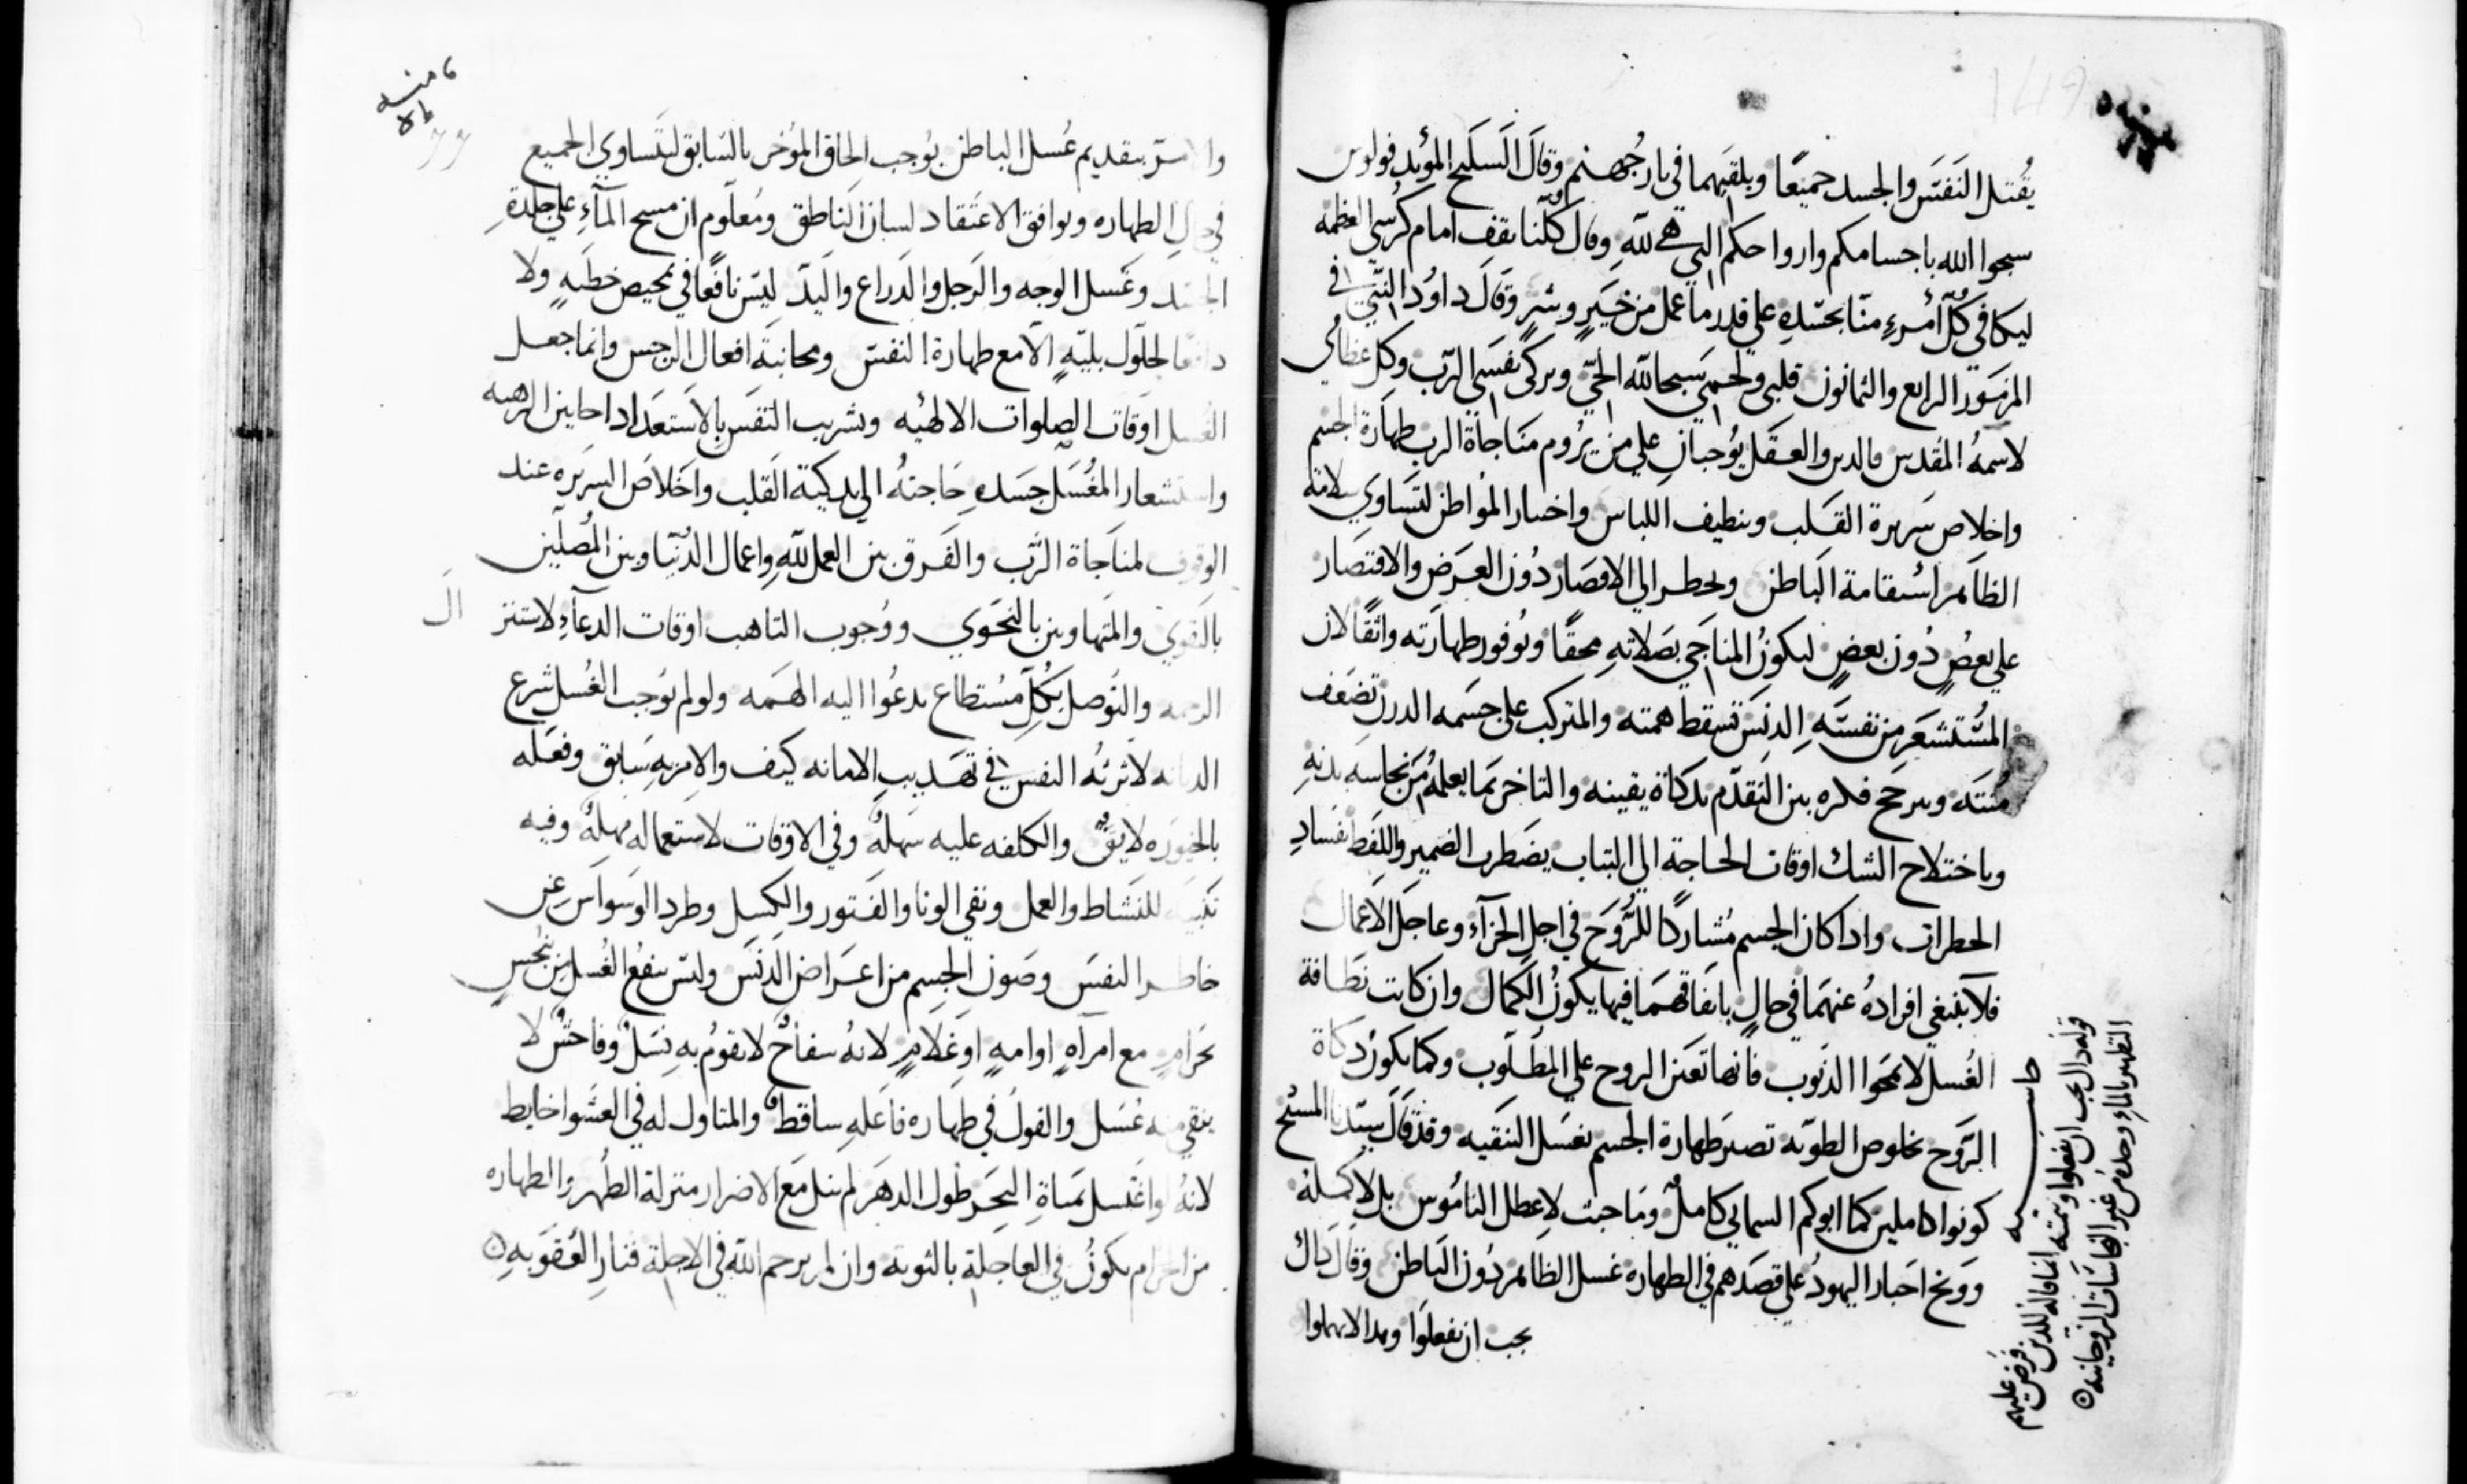 يقتل النفس والجسد جميعًا ويلقيهما في نار جهنم وقال السليح المؤيد فولوس
سبحوا الله باجسامكم وارواحكم التي هي لله وقال كلنا نقف امام كرسي العظمه
ليكافي كل أمرء منا بجسده علي قدر ما عمل من خير وشر وقال داود النبي في
المزمور الرابع والثمانون قلبي ولحمي سبحا لله الحي وبركي نفسي الرب وكل عظامي
لاسمه المقدس فالدين والعقل يوجبان علي من يروم مناجاة الرب طهارة الجسم
واخلاص سريرة القلب وتنظيف اللباس واختيار المواطن لتساوي سلامة
الظاهر استقامة الباطن دون العرض والاقتصار
علي بعض دون بعض ليكون المناجي بصلاته محقًا وبوفور طهارته واثقًا لان
المستشعر من نفسه الدنس تسقط همته والمتركب علي جسمه الدرن تضعف
منته ويرجح فكره بين التقدم بدكاة يقينه والتاخر بما يعلمه من نجاسه بدنه
وباختلاج الشك اوقات الحاجة الي الثبات يضطرب الضمير واللفظ بفساد
الخطرات وادا كان الجسم مشاركًا للروح في اجل الجزآء وعاجل الاعمال
فلا ينبغي افراده عنهما في حال باتفاقهما فيها يكون الكمال وان كانت نظافة
الغسل لا تمحوا الدنوب فانها تعين الروح علي المطلوب وكما بكون دكاة
الروح بخلوص الطويه تصير طهارة الجسم بغسل التنقيه وقد قال سيدنا المسيح
كونوا كاملين كما ابوكم السمايي كامل وما جيت لاعطل الناموس بل لاكمله
ووبخ احبار اليهود علي قصدهم في الطهاره غسل الظاهر دون الباطن وقال داك
يجب ان تفعلوا وهدا لا تهملوا
حاشيه
قوله داك يجب ان تفعلوا وتتمته انما قاله للدين فرض عليهم
التطهير بالماء وحده من غير النجاسات الروحانيه
بتقديم غسل الباطن يوجب الحاق المؤخر بالسابق ليتساوي الجميع
في حال الطهاره ويوافق الاعتقاد لسان الناطق ومعلوم ان مسح المآء علي جلدة
الجسد وغسل الوجه والرجل والدراع واليد ليس نافعًا في تمحيص خطيه ولا
دافعًا لحلول بليه الا مع طهارة النفس ومجانبة افعال الرجس وانما جعل
الغسل اوقات الصلوات الالهيه وتشريب النفس بالاستعداد احايين الرهبه
واستشعار المغسل جسده حاجته الي تدكية القلب واخلاص السريره عند
الوقوف لمناجاة الرب والفرق بين العمل لله واعمال الدنيا وبين المصلين
بالتقوي والمتهاونين بالنجوي ووجوب التاهب اوقات الدعآء لاستنز ال
الرحمه والتوصل بكل مستطاع يدعوا اليه الهمه ولو لم يوجب الغسل شرع
الديانه لاثرته النفس في تهديب الامانه كيف والامر به سابق وفعله
والكلفه عليه سهله وفي الاوقات لاستعماله مهله وفيه
تنبيه للنشاط والعمل ونفي الونا والفتور والكسل وطرد الوسواس عن
خاطر النفس وصون الجسم من اعراض الدنس وليس ينفع الغسل من نجس
بحرام مع امراه او امه او غلام لانه سفاح لا يقوم به نسل وفاحش لا
ينقي منه غسل والقول في طهاره فاعله ساقط والمتاول له في العشوا خابط
لانه لو اغتسل بمياة البحر طول الدهر لم ينل مع الاضرار منزلة الطهر والطهاره
من الحرام بكون في العاجلة بالتوبه وان لم يرحم الله في الاجلة فنار العقوبه